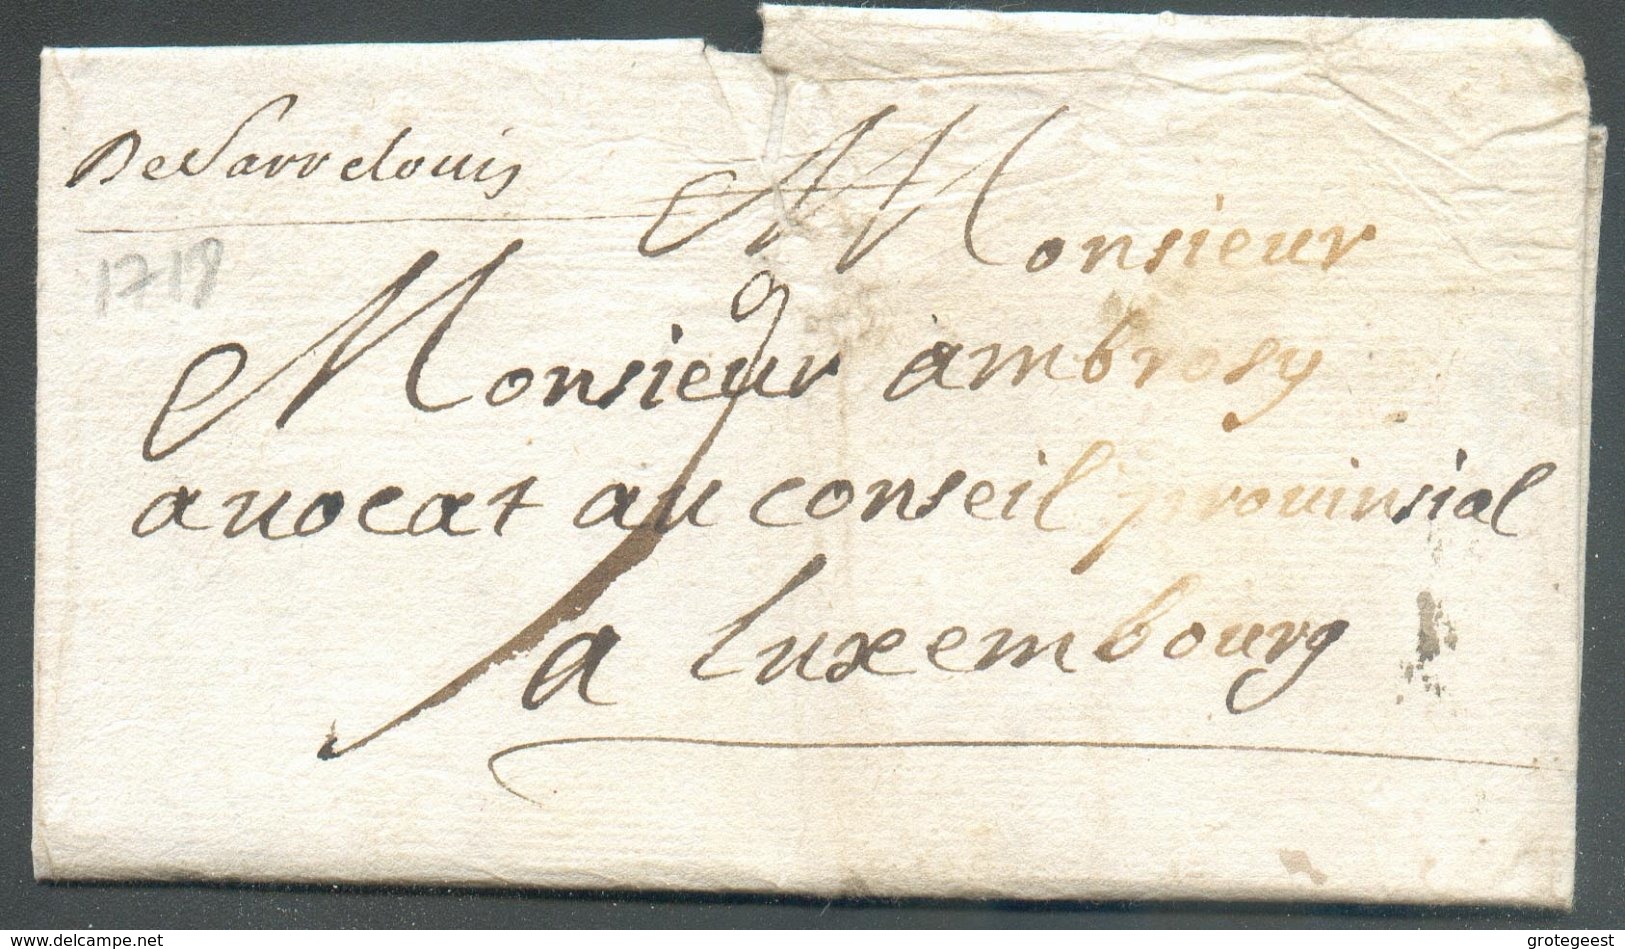 De Sarrelouis
1719
Monsieur
Monsieur ambrosy
auocat au conseil prouinsial
a luxembourg
www.delcampe.net
grotegeest